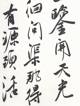 鑒開天光
徊問渠那得
有源頭活